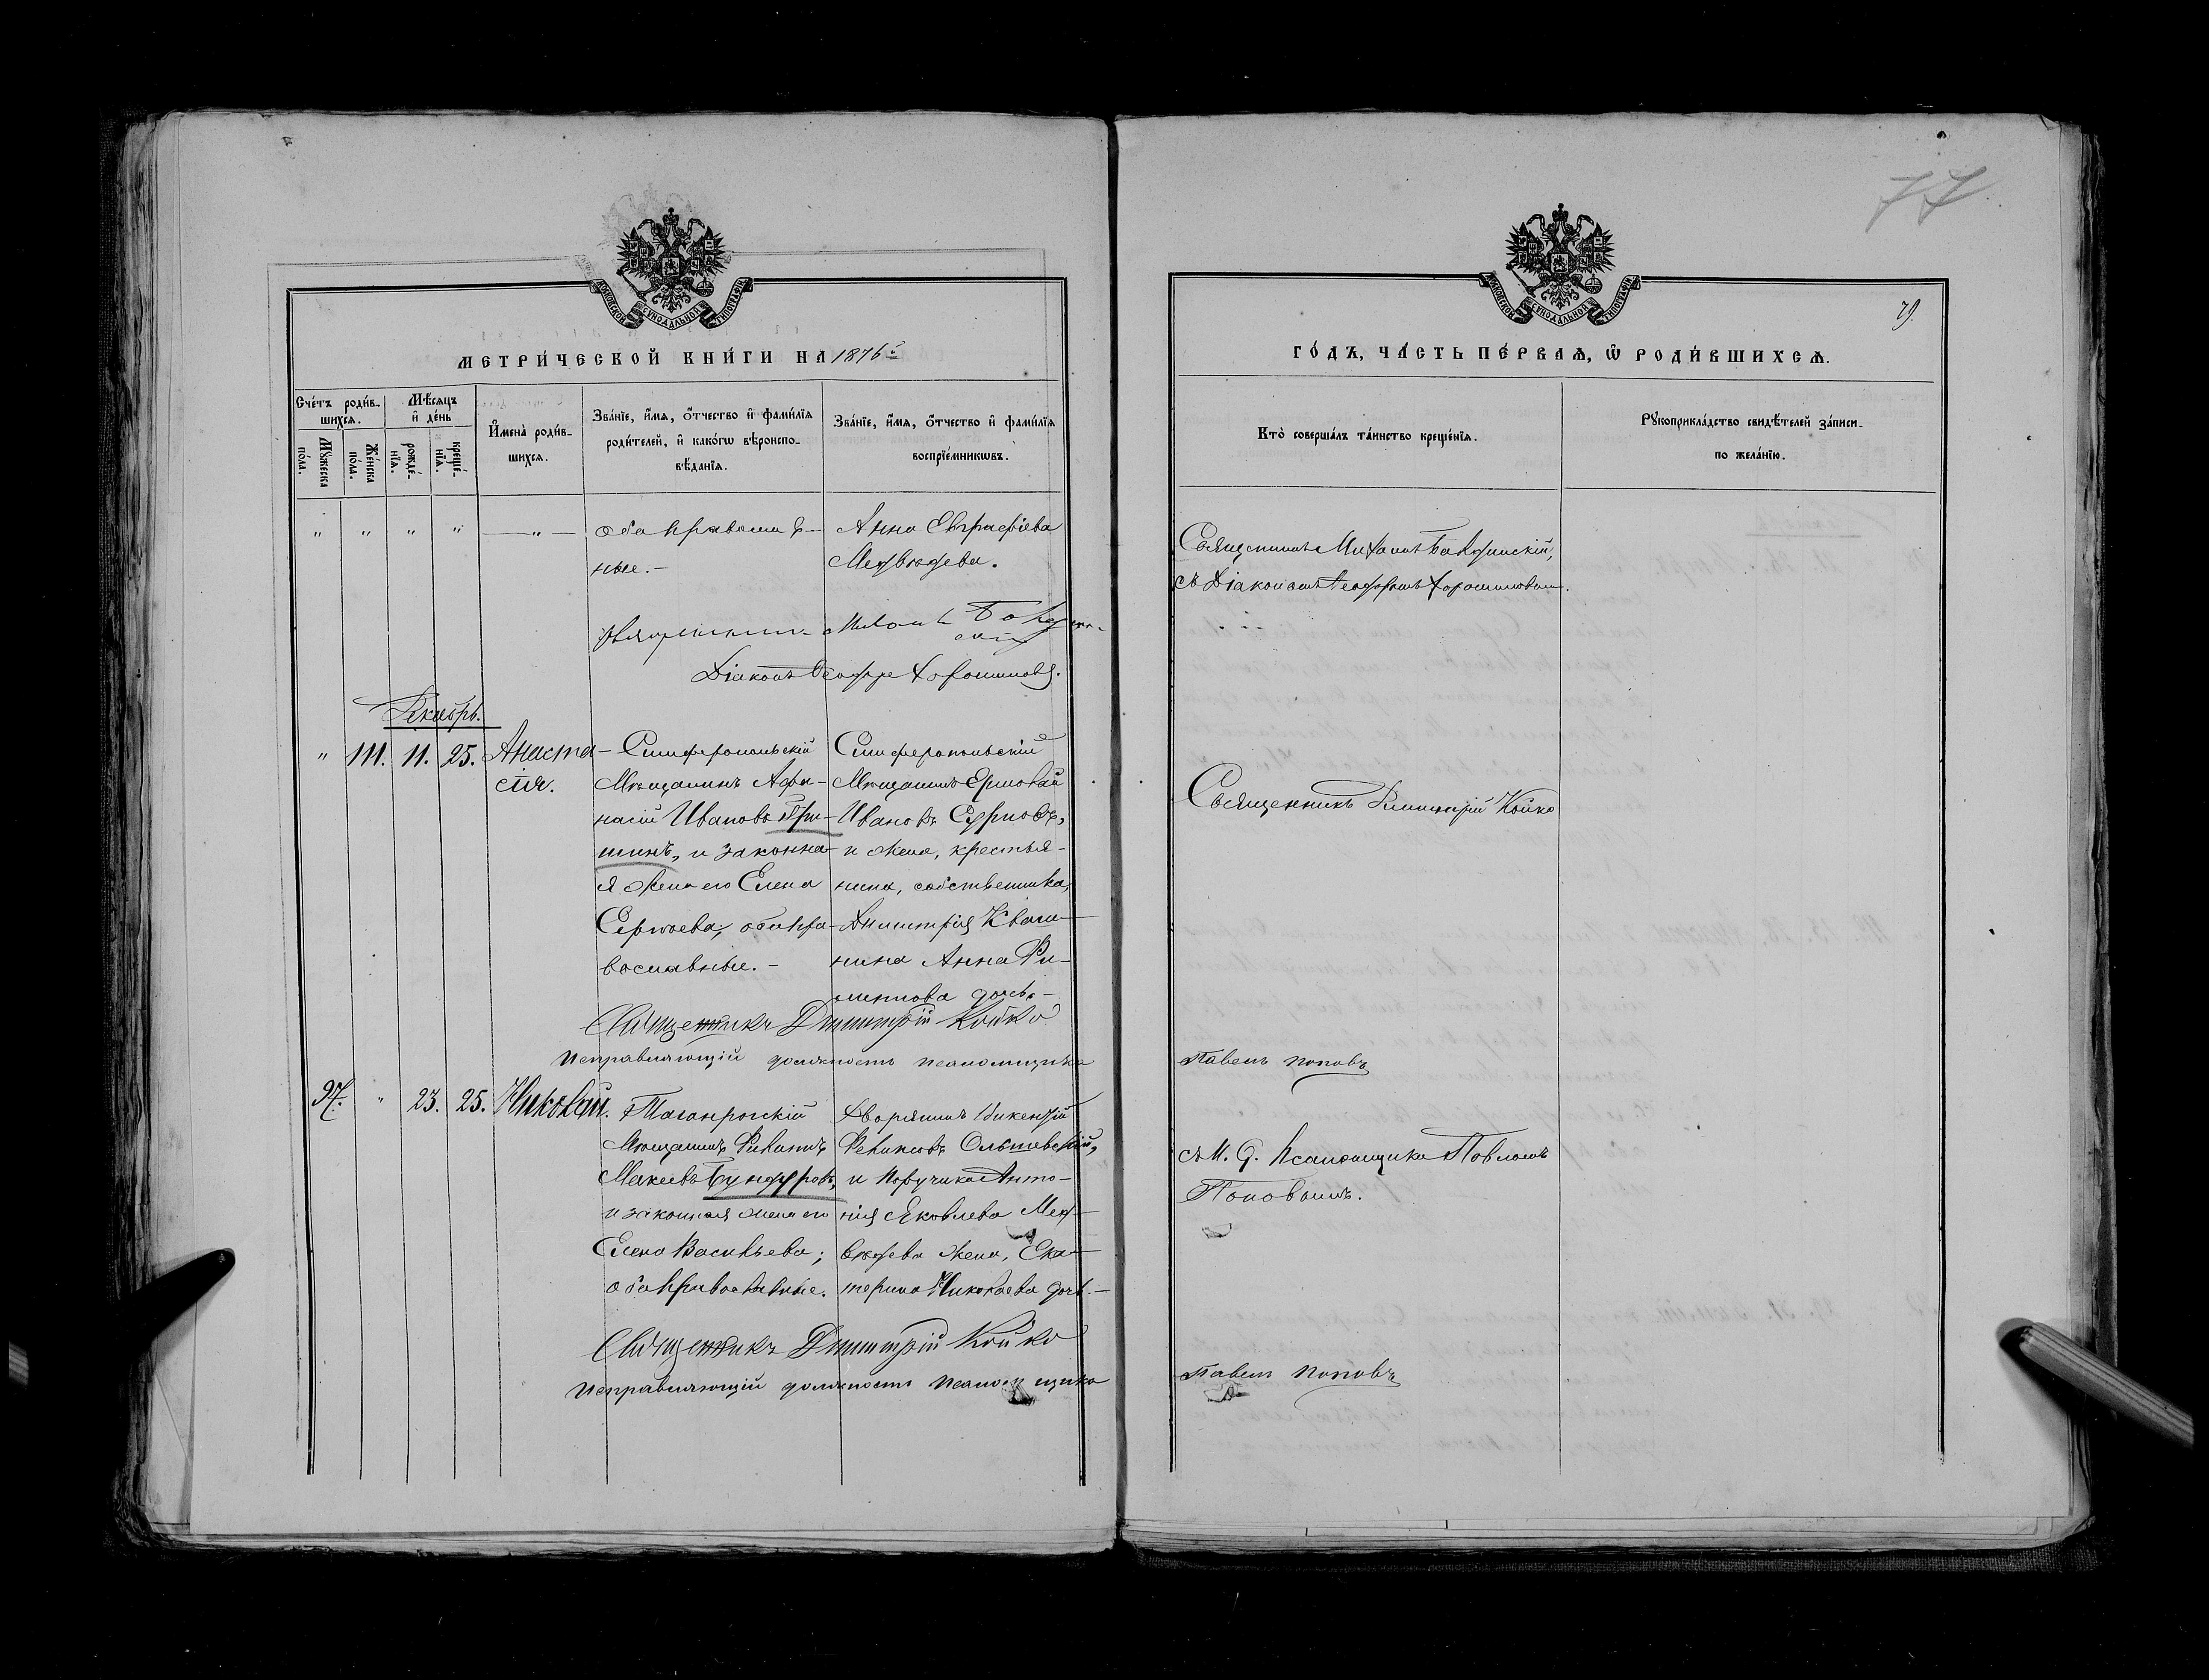 77
МОСКОВСКОЙ СѴНОДАЛЬНОЙ ТИПОГРАФІИ
МЕТРИ́ЧЕСКОЙ КНИ́ГИ НА 1876й
Сче́тъ роди́в-
шихсѧ.
Мѣ́сѧцъ
и҆ де́нь
Мꙋ́жеска по́ла.
Же́нска по́ла.
рожде́-нїѧ.
креще́-нїѧ.
И҆мена̀ роди́в-
шихсѧ.
Зва́нїе, и҆́мѧ, ѻ҆́тчество и҆ фами́лїѧ
роди́телей, и҆ како́гѡ вѣроиспо-
вѣ́данїѧ.
Зва́нїе, и҆́мѧ, ѻ҆́тчество и҆ фами́лїѧ
воспрїе́мникѡвъ.
" " " " — " — оба православ-
ные. —
Анна Евграфіева
Медвѣдева.
Священникъ Михаилъ
Діаконъ Ѳеодоръ Хорошиловъ.
Декабрь.
" 111. 11. 25. Анаста-
сія.
Симферопольскій
Мѣщанинъ Афа-
насій Ивановъ Гри-
шинъ, и законна-
я жена его Елена
Сергѣева, оба пра-
вославные. —
Симферопольскій
Мѣщанинъ Ермолай
Ивановъ
и жена, крестья-
нина, собственника,
Димитрія Кваш-
нина Анна Фи-
липпова дочь. —
Священникъ Димитрій Койко
Исправляющій должность псаломщика
97. " 23. 25. Николай.
Таганрогскій
Мѣщанинъ Филиппъ
и законная жена его
Елена Васильева;
оба православные.
Дворянинъ Викентій
Феликсовъ Ольшевскій,
и Поручика Анто-
нія Яковлева Мед-
вѣдева жена, Ека-
терина Николаева дочь. —
Священникъ Димитрій Койко
Исправляющій должность псаломщика
МОСКОВСКОЙ СѴНОДАЛЬНОЙ ТИПОГРАФІИ
79.
ГО́ДЪ, ЧА́СТЬ ПЕ́РВАѦ, Ѡ҆ РОДИ́ВШИХСѦ.
Кто̀ соверша́лъ та́инство креще́нїѧ.
Рꙋкоприкла́дство свидѣ́телей за́писи
по жела́нїю.
Священникъ Михаилъ
съ Діакономъ Ѳеодоромъ Хорошиловымъ.
Священникъ Димитрій Койко
Павелъ Поповъ
съ И. Д. Псаломщика Павломъ
Поповымъ.
Павелъ Поповъ